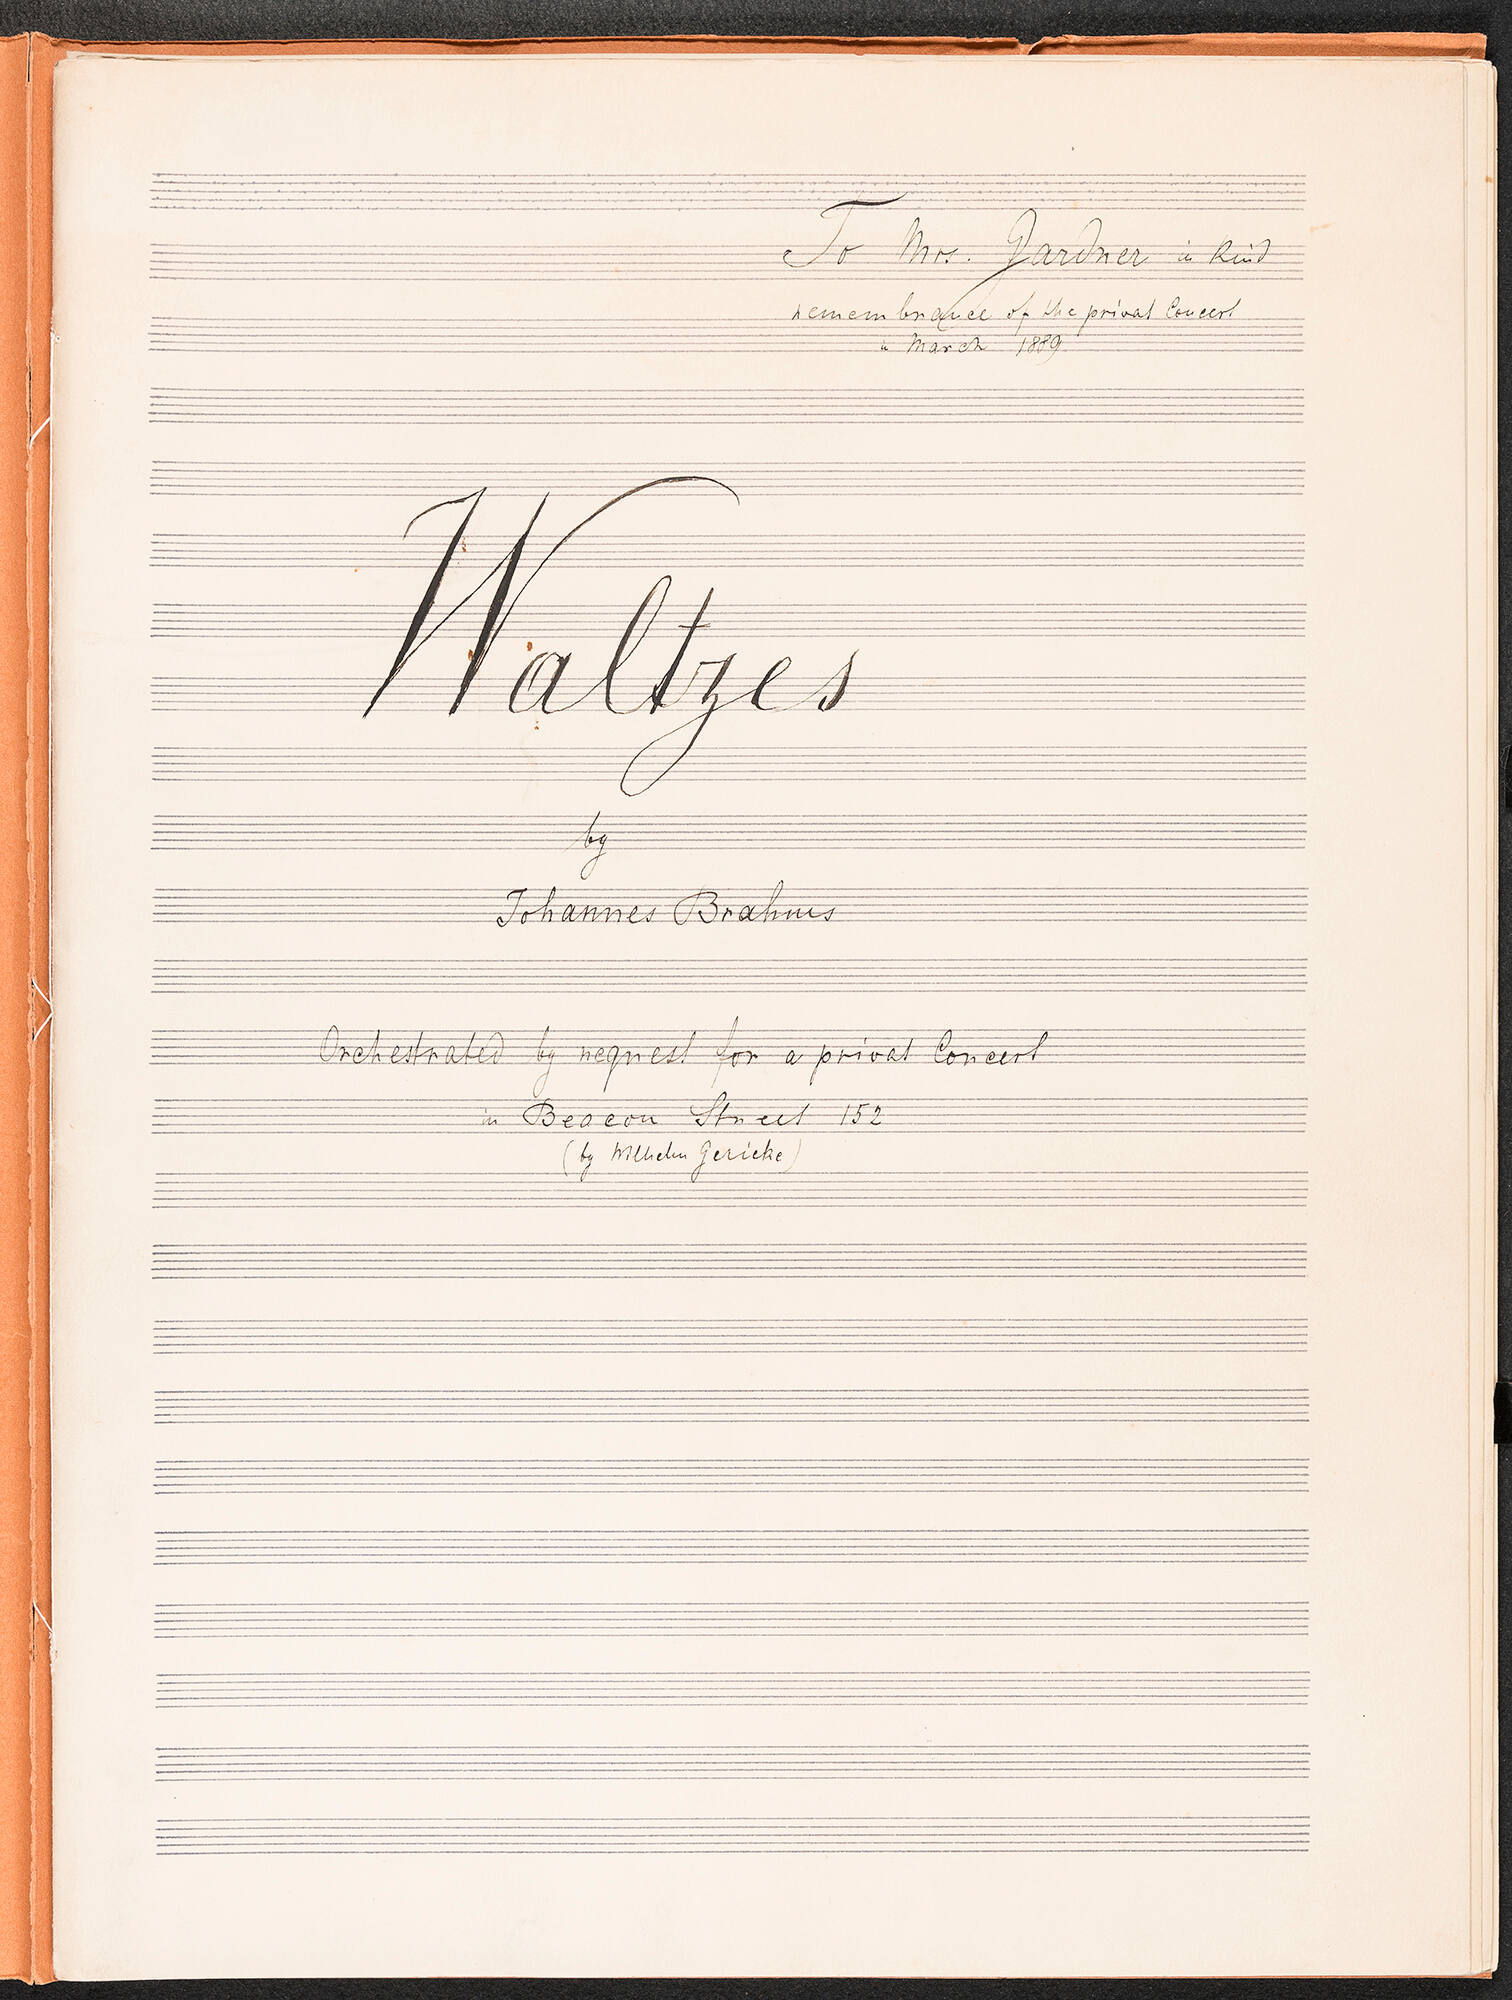 To Mrs. Gardner in kind
remembrance of the privat Concert
in March 1889
Waltzes
by
Johannes Brahms
Orchestrated by request for a privat Concert
in Beacon Street 152
(by Wilhelm Gericke)